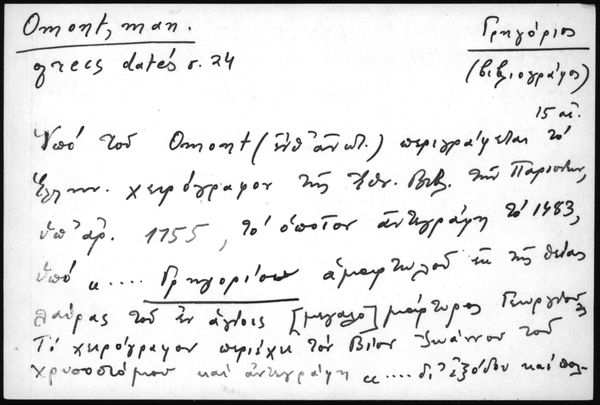 Omont, man.
grecs datés σ. 24
Γρηγόριος
(βιβλιογράφος)
15 αἰ.
Ὑπό τοῦ Omont (ἔνθ' ἀνωτ.) περιγράφεται τό
Ἑλλην. χειρόγραφον τῆς Ἐθν. Βιβ. τῶν Παρισίων,
ὑπ' ἀρ. 1755, τό ὁποῖον ἀντεγράφη τό 1483,
ὑπό « .... Γρηγορίου ἁμαρτωλοῦ ἐκ τῆς θείας
λαύρας τοῦ ἐν ἁγίοις [μεγαλο]μάρτυρος Γεωργίου»
Τό χειρόγραφον περιέχει τόν Βίον Ἰωάννου τοῦ
Χρυσοστόμου καί ἀντεγράφη « .... δι' ἐξόδου καί πολ-